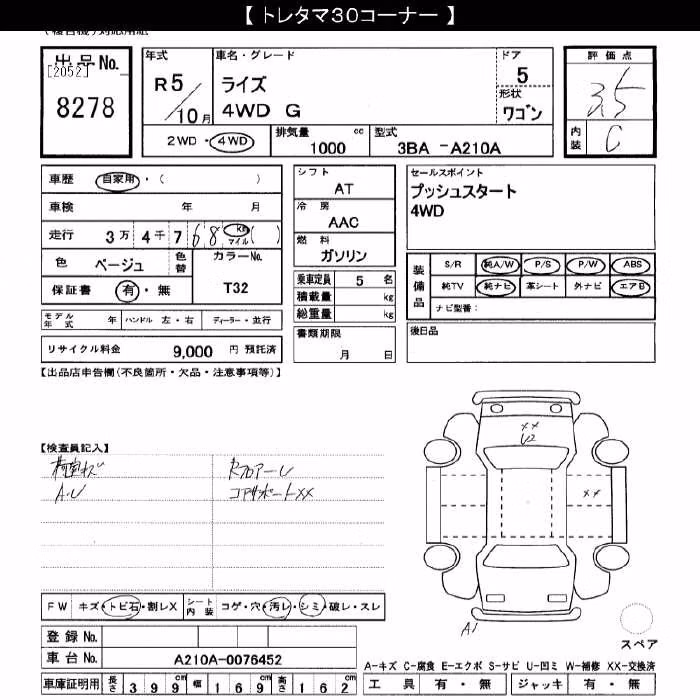 【 トレタマ30コーナー 】
出品No.
[2052]
8278
年式
R 5 / 10 月
車名・グレード
ライズ
4WD G
ドア
5
形状
ワゴン
2WD・4WD
排気量 cc
1000
型式
3BA -A210A
評価点
3.5
内装
C
車歴 自家用・( )
車検 年 月
走行 3万 4千 7 6 8 Km マイル ( )
色 ベージュ 色替
カラーNo.
T32
保証書 有・無
モデル年式 年 ハンドル 左・右 ディーラー・並行
リサイクル料金 9,000 円 預託済
シフト
AT
冷房
AAC
燃料
ガソリン
乗車定員 5 名
積載量 kg
総重量 kg
書類期限
月 日
セールスポイント
プッシュスタート
4WD
装備品
S/R 純A/W P/S P/W ABS
純TV 純ナビ 革シート 外ナビ エアB
ナビ型番:
後日品
【出品店申告欄(不良箇所・欠品・注意事項等)】
【検査員記入】
A.U
コアサポートXX
XX
U2
XX
A1
FW キズ・トビ石・割レX シート内装 コゲ・穴・汚レ・シミ・破レ・スレ
登録No.
車台No. A210A-0076452
車庫証明用 長さ 399cm 幅 169cm 高さ 162cm
スペア
A-キズ C-腐食 E-エクボ S-サビ U-凹ミ W-補修 XX-交換済
工具 有・無 ジャッキ 有・無